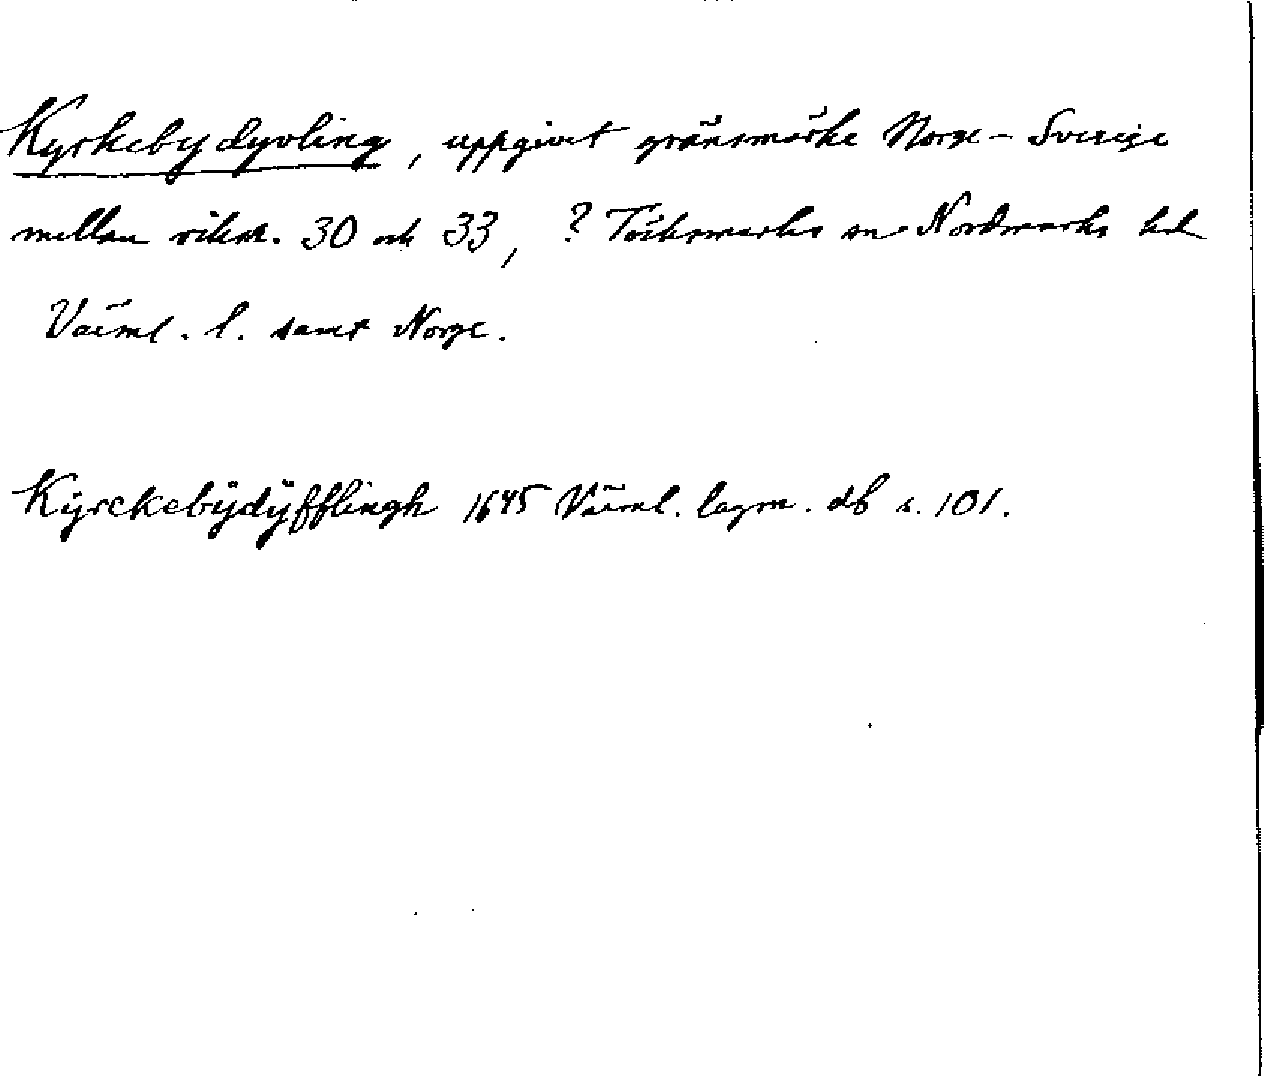 Kyrkebydyvling, uppgivet gränsmärke Norge - Sverige
mellan riksr. 30 och 33, ? Töcksmarks sn Nordmarks hd
Värml. l. samt Norge.
Kÿrckebÿdÿfflingh 1645 Värml. lagm. db s. 101.